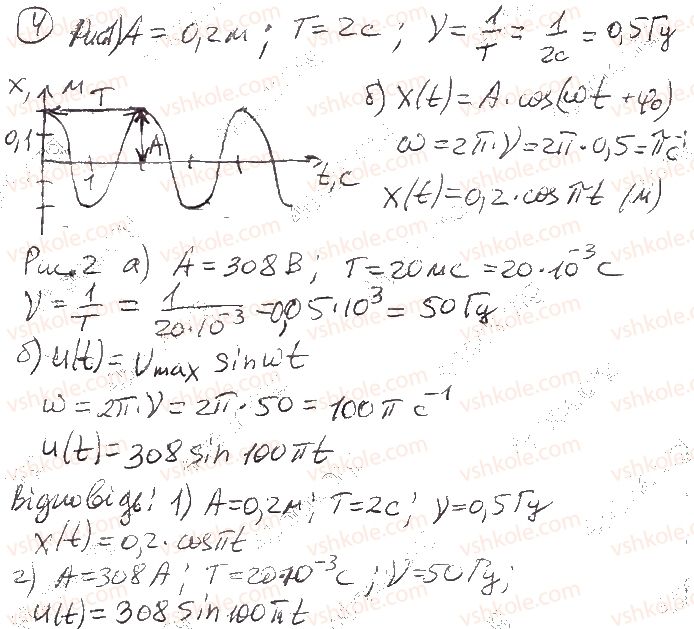 4 Рис1) A = 0,2м; T = 2с; ν = 1/T = 1/2с = 0,5Гц
x, м T
0,1
A
1
t, с
б) x(t) = A·cos(ωt + φ₀)
ω = 2π·ν = 2π·0,5 = πс⁻¹
x(t) = 0,2·cosπt (м)
Рис. 2 а) A = 308В; T = 20мс = 20·10⁻³с
ν = 1/T = 1/20·10⁻³ = 0,05·10³ = 50Гц
б) u(t) = Umax sinωt
ω = 2π·ν = 2π·50 = 100π с⁻¹
u(t) = 308 sin 100πt
Відповідь: 1) A = 0,2м; T = 2с; ν = 0,5Гц
x(t) = 0,2·cosπt
2) A = 308А; T = 20·10⁻³с; ν = 50Гц;
u(t) = 308 sin 100πt